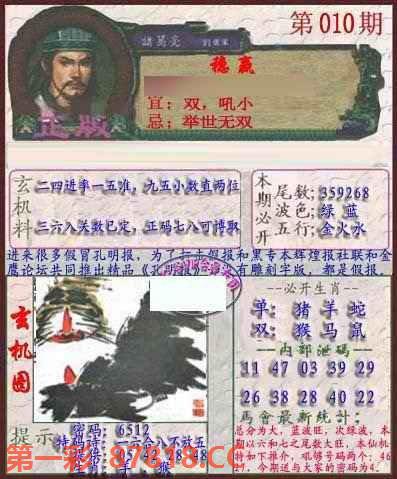 第010期
諸葛亮
稳赢
宜：双，吼小
忌：举世无双
正版
玄机料
二四进率一五准，九五小数直两位
三六八关数已定，正码七八可博取
本期必开
尾数;359268
波色;绿 蓝
五行;金火水
进来很多假冒孔明报，为了打击假报和黑专本辉煌报社联和金
鹰论坛共同推出精品《孔明报》
有雕刻字版，都是假报。
玄机图
--必开生肖--
单：猪 羊 蛇
双：猴 马 鼠
--内部泄码--
11 47 03 39 29
26 38 28 40 22
马會最新統计：
总分为大，蓝波旺，次绿波，本
期以六和七之尾数大旺，本仙机
特如下推介，吼够号码两个：46
27，今期送与大家的密码为4.
提示
密码：6512
特码诗：一六合八不放五
27 42 28 48
第一彩:87818.CC